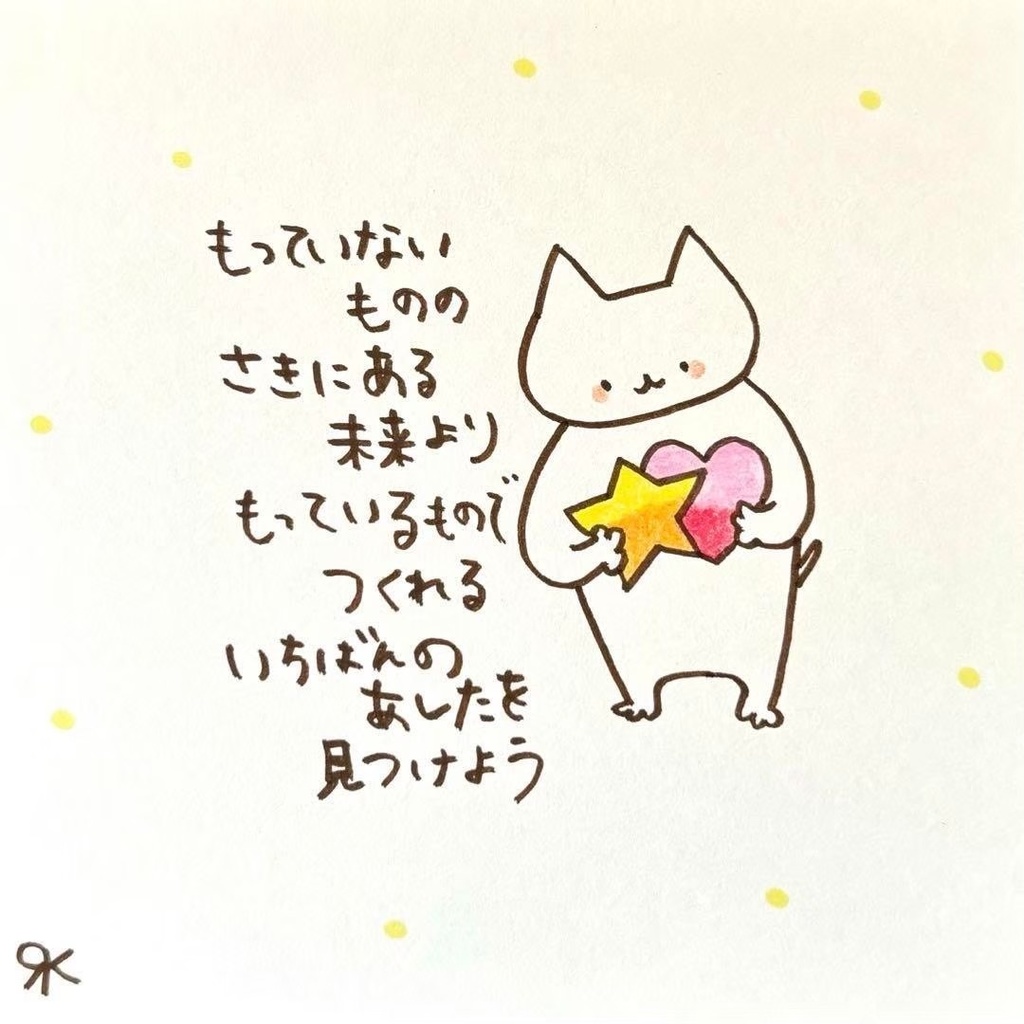 もっていない
ものの
さきにある
未来より
もっているもので
つくれる
いちばんの
あしたを
見つけよう